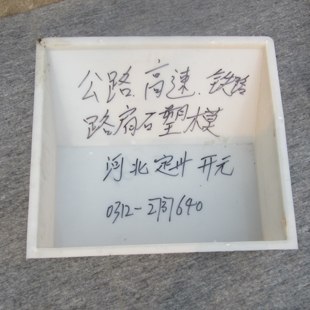 公路.高速.铁路
路肩石塑模
河北定州开元
0312-2737640